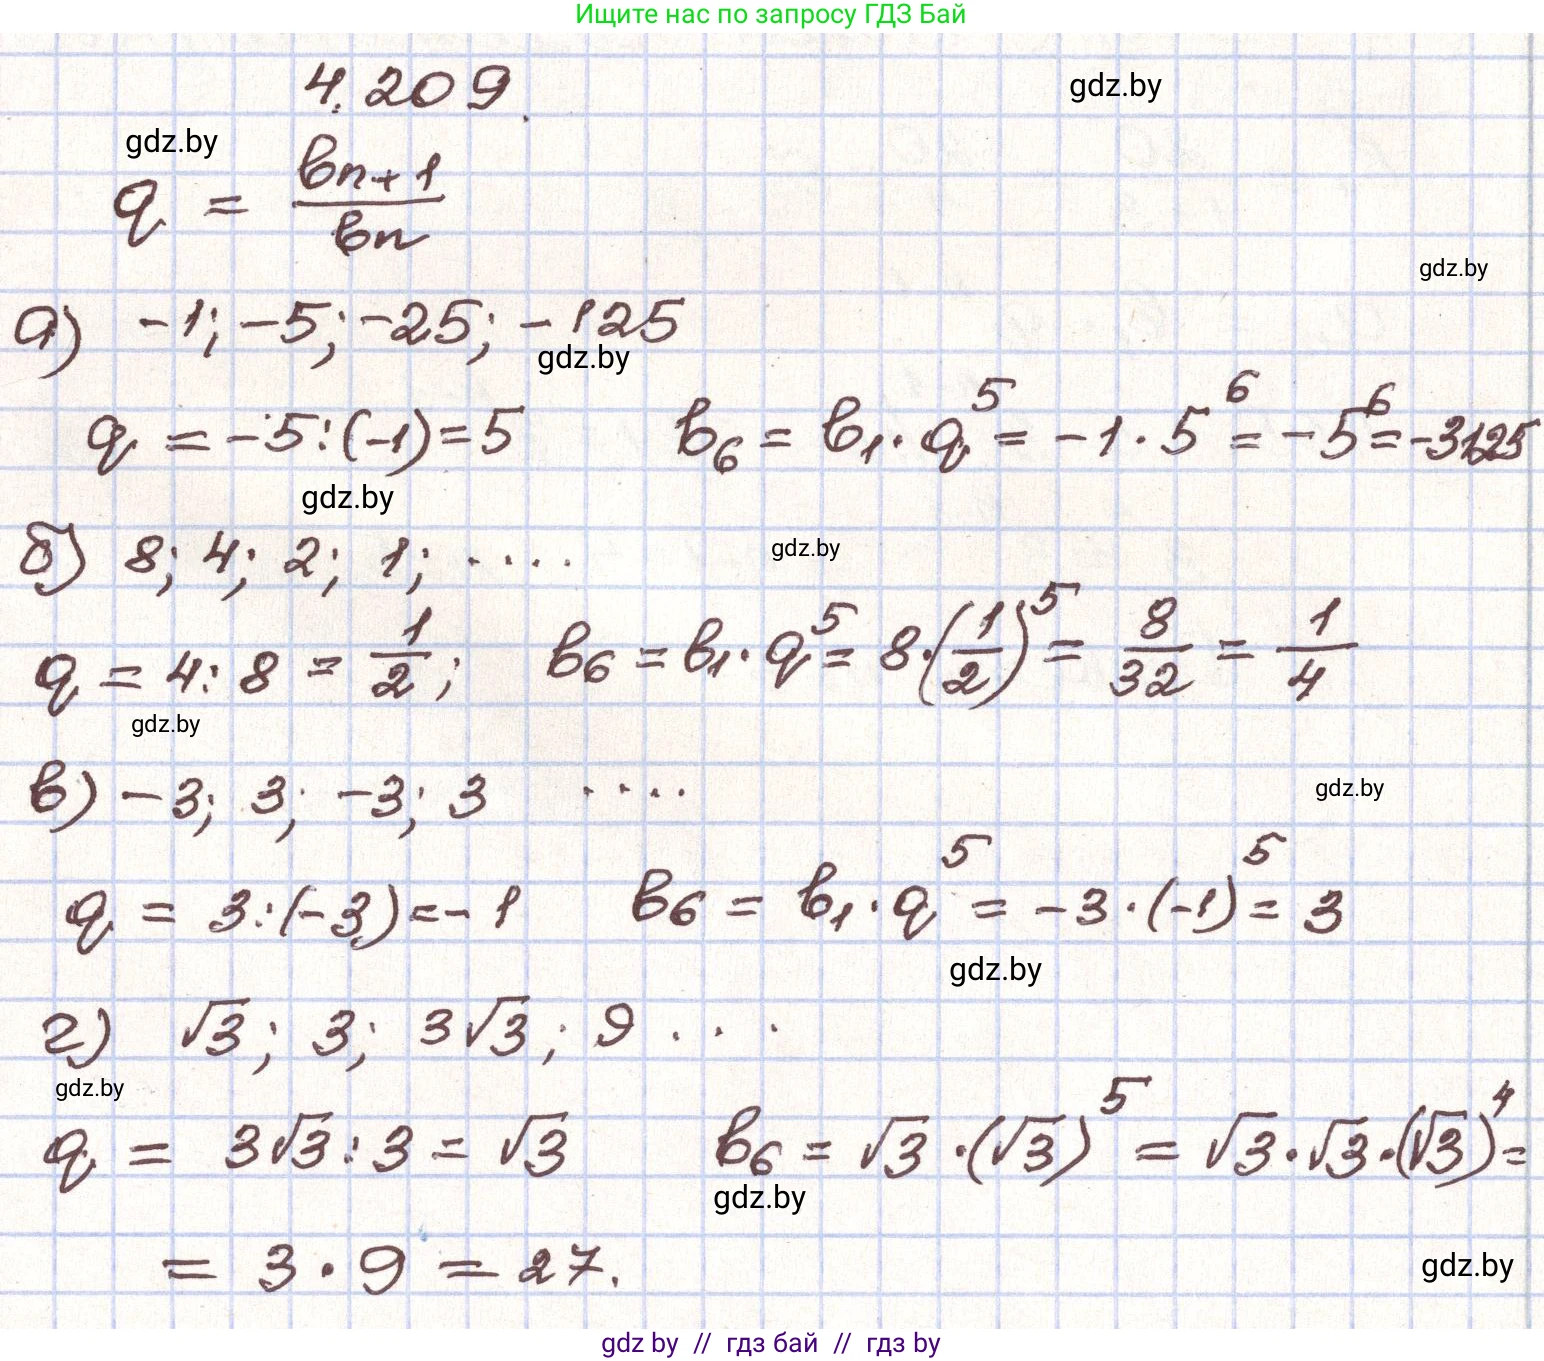 Ищите нас по запросу ГДЗ Бай
4.209.
gdz.by
gdz.by
q = bn+1 / bn
gdz.by
а) -1; -5; -25; -125
gdz.by
q = -5:(-1) = 5 b₆ = b₁·q⁵ = -1·5⁶ = -5⁶ = -3125
gdz.by
б) 8; 4; 2; 1; ....
gdz.by
q = 4:8 = 1/2; b₆ = b₁·q⁵ = 8·(1/2)⁵ = 8/32 = 1/4
gdz.by
в) -3; 3; -3; 3 ....
gdz.by
q = 3:(-3) = -1 b₆ = b₁·q⁵ = -3·(-1)⁵ = 3
gdz.by
г) √3; 3; 3√3; 9 ...
gdz.by
q = 3√3:3 = √3 b₆ = √3·(√3)⁵ = √3·√3·(√3)⁴ =
gdz.by
= 3·9 = 27.
gdz.by
gdz by // гдз бай // гдз by